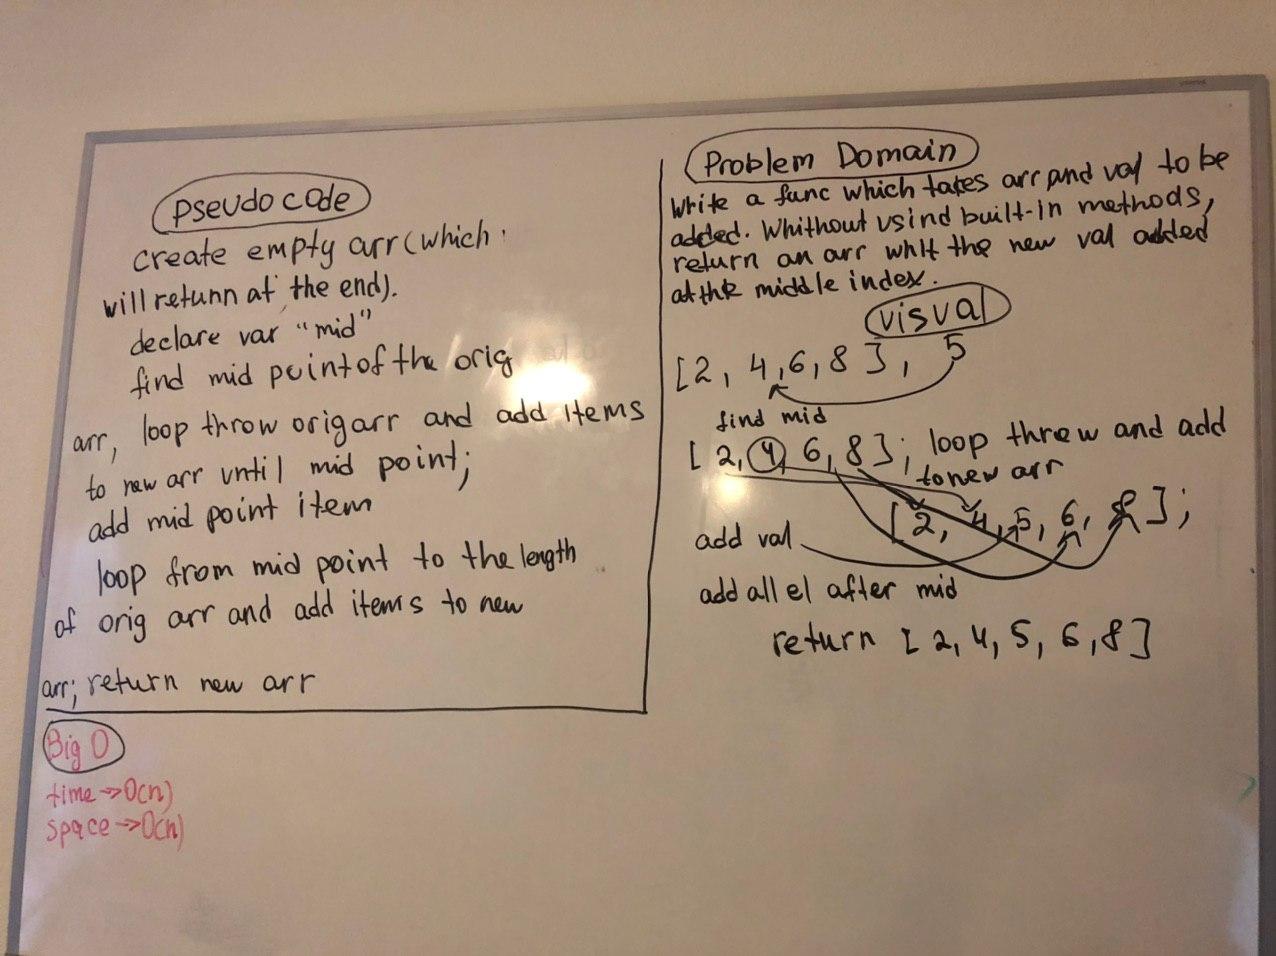 Pseudo code
create empty arr (which
will return at the end).
declare var "mid"
find mid point of the orig
arr, loop throw orig arr and add items
to new arr until mid point;
add mid point item
loop from mid point to the length
of orig arr and add items to new
arr; return new arr
Big O
time -> O(n)
space -> O(n)
Problem Domain
Write a func which takes arr and val to be
added. Whithout usind built-in methods,
return an arr whit the new val added
at the middle index.
Visual
[2, 4, 6, 8], 5
find mid
[2, 4, 6, 8]; loop threw and add
to new arr
[2, 4, 5, 6, 8];
add val
add all el after mid
return [2, 4, 5, 6, 8]